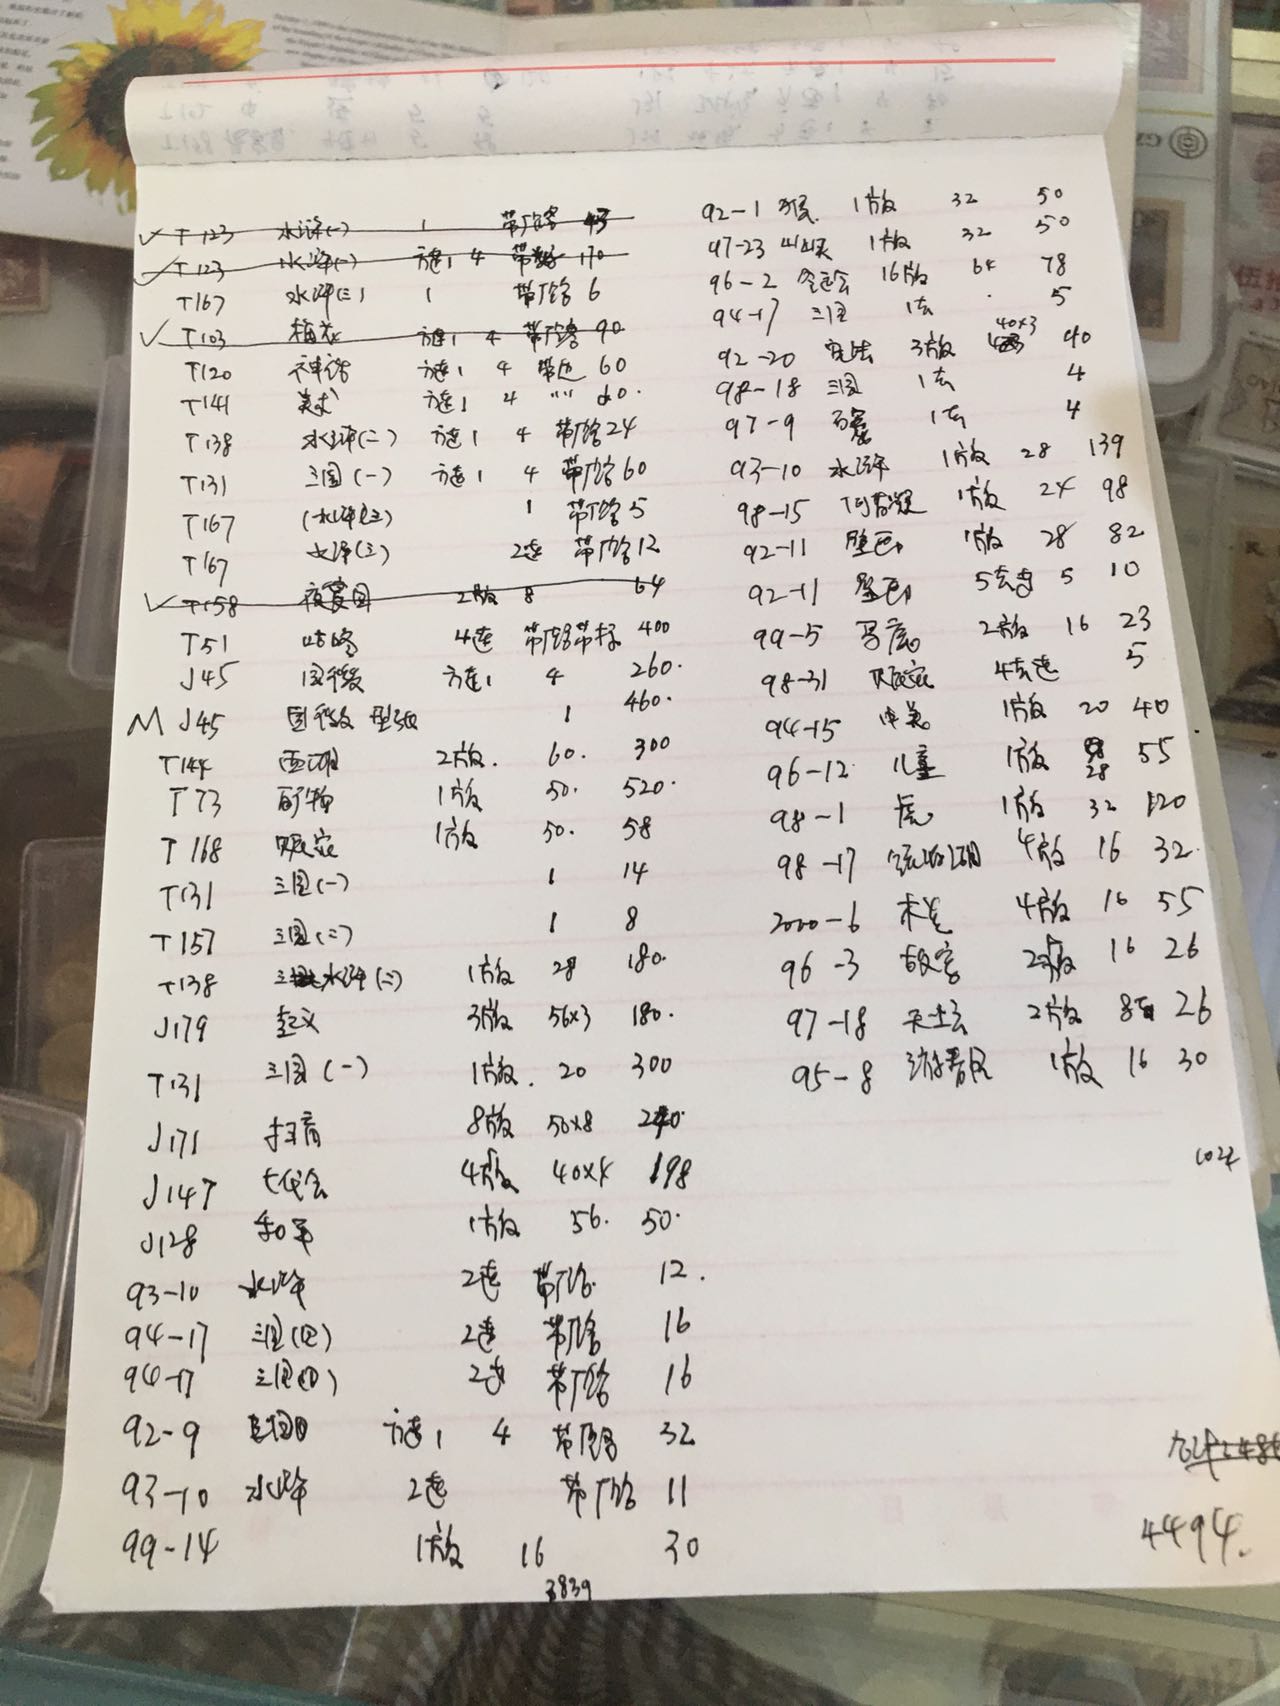 T123 水浒(一) 1 带厂铭 43
T123 水浒(一) 方连1 4 带数 170
T167 水浒(三) 1 带厂铭 6
T103 梅花 方连1 4 带厂铭 90
T120 神话 方连1 4 带色 60
T141 美术 方连1 4 〃 60.
T138 水浒(二) 方连1 4 带厂铭 24
T131 三国(一) 方连1 4 带厂铭 60
T167 (水浒(三) 1 带厂铭 5
T167 水浒(三) 2连 带厂铭 12
T158 夜宴图 2版 8 64
T51 咕咚 4连 带厂铭带标 400
J45 国徽 方连1 4 260.
M J45 国徽 型张 1 460.
T144 西湖 2版. 60. 300
T73 矿物 1版 50. 520.
T168 赈灾 1版 50. 58
T131 三国(一) 1 14
T157 三国(二) 1 8
T138 水浒(二) 1版 28 180.
J179 起义 3版 56x3 180.
T131 三国(一) 1版. 20 300
J171 扫盲 8版 50x8 240.
J147 七代会 4版 40x4 198
J128 和平 1版 56. 50.
93-10 水浒 2连 带厂铭. 12.
94-17 三国(四) 2连 带厂铭 16
94-17 三国(四) 2连 带厂铭 16
92-9 方连1 4 带厂铭 32
93-10 水浒 2连 带厂铭 11
99-14 1版 16 30
3839
92-1 猴. 1版 32 50
97-23 1版 32 50
96-2 全运会 16版 64 78
94-17 三国 1套 5
92-20 宪法 3版 40x3 40
98-18 三国 1套 4
97-9 1套 4
93-10 水浒 1版 28 139
98-15 何香凝 1版 24 98
92-11 壁画 1版 28 82
92-11 壁画 5套 5 10
99-5 马鹿 2版 16 23
98-31 赈灾 4套连 5
94-15 中美 1版 20 40
96-12 儿童 1版 28 55
98-1 虎 1版 32 120
98-17 4版 16 32.
2000-6 木兰 4版 16 55
96-3 故宫 2版 16 26
97-18 天坛 2版 8 26
95-8 游春图 1版 16 30
1024
4494.